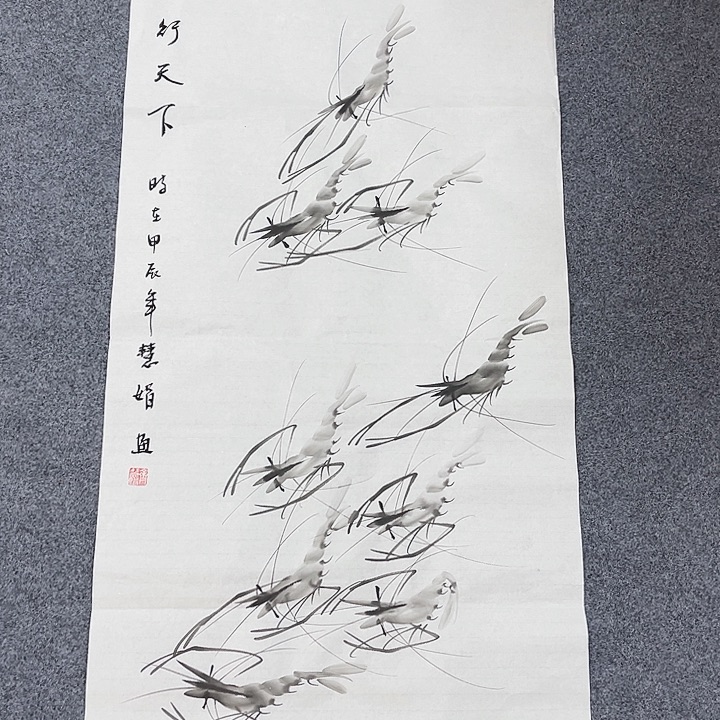 行天下
时在甲辰年慧娟画